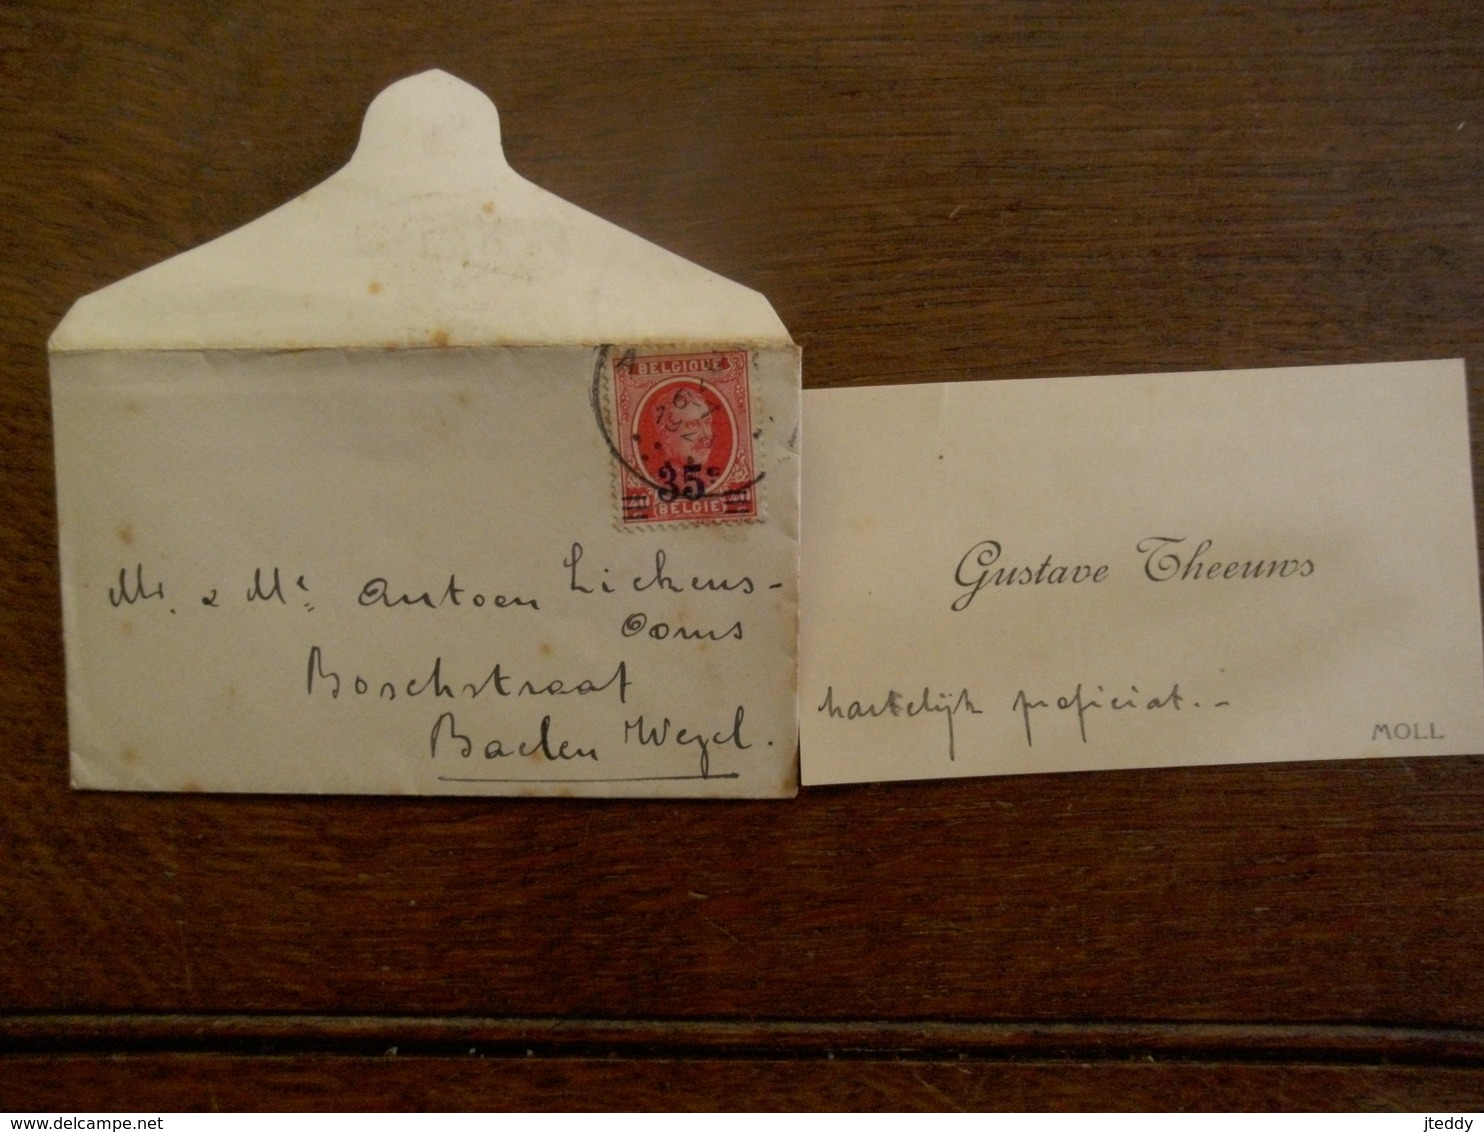 BELGIQUE
6-7
35c
BELGIË
Mr. & Me. Antoen Lickens-
Ooms
Boschstraat
Baelen Wezel.
Gustave Theeuws
hartelijk proficiat.-
MOLL
jteddy